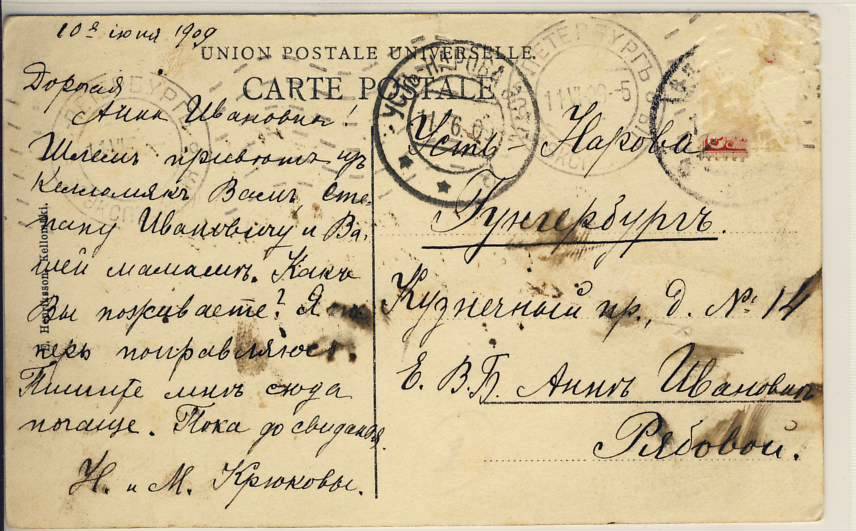 10го іюня 1909
UNION POSTALE UNIVERSELLE.
CARTE POSTALE
Дорогая
Анна Ивановна!
Шлемъ приветъ изъ
Келломякъ Вамъ Сте-
пану Ивановичу и Ва-
шей мамашѣ. Какъ
Вы поживаете? Я те-
перь поправляюсь.
Пишите мнѣ сюда
почаще. Пока до свиданья.
Н. и М. Крюковы.
Усть-Нарова
Гунгербургъ.
Кузнечный пр., д. № 14
Е. В. Б. Аннѣ Ивановнѣ
Рябовой.
Henriksson, Kellomäki.